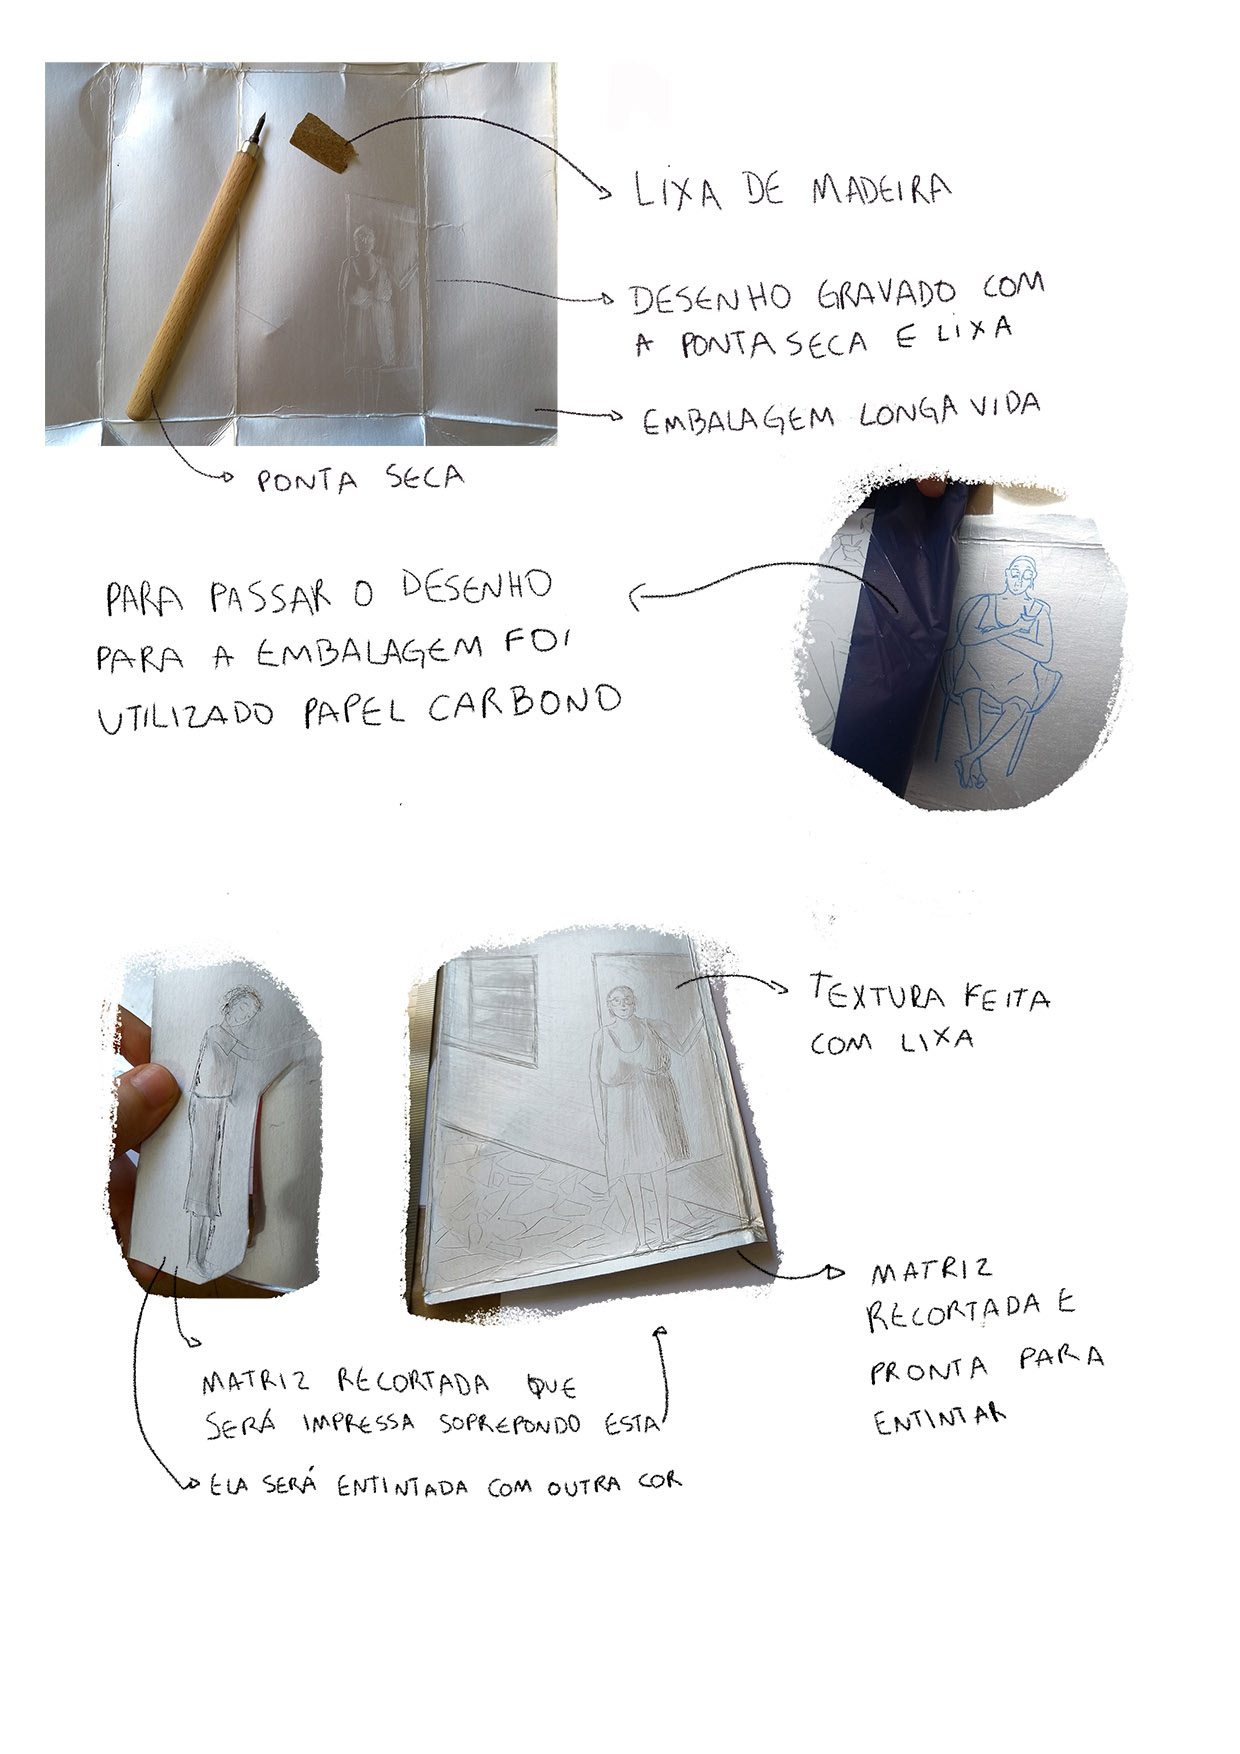 LIXA DE MADEIRA
DESENHO GRAVADO COM
A PONTA SECA E LIXA
EMBALAGEM LONGA VIDA
PONTA SECA
PARA PASSAR O DESENHO
PARA A EMBALAGEM FOI
UTILIZADO PAPEL CARBONO
TEXTURA FEITA
COM LIXA
MATRIZ
RECORTADA E
PRONTA PARA
ENTINTAR
MATRIZ RECORTADA QUE
SERÁ IMPRESSA SOPREPONDO ESTA
ELA SERÁ ENTINTADA COM OUTRA COR